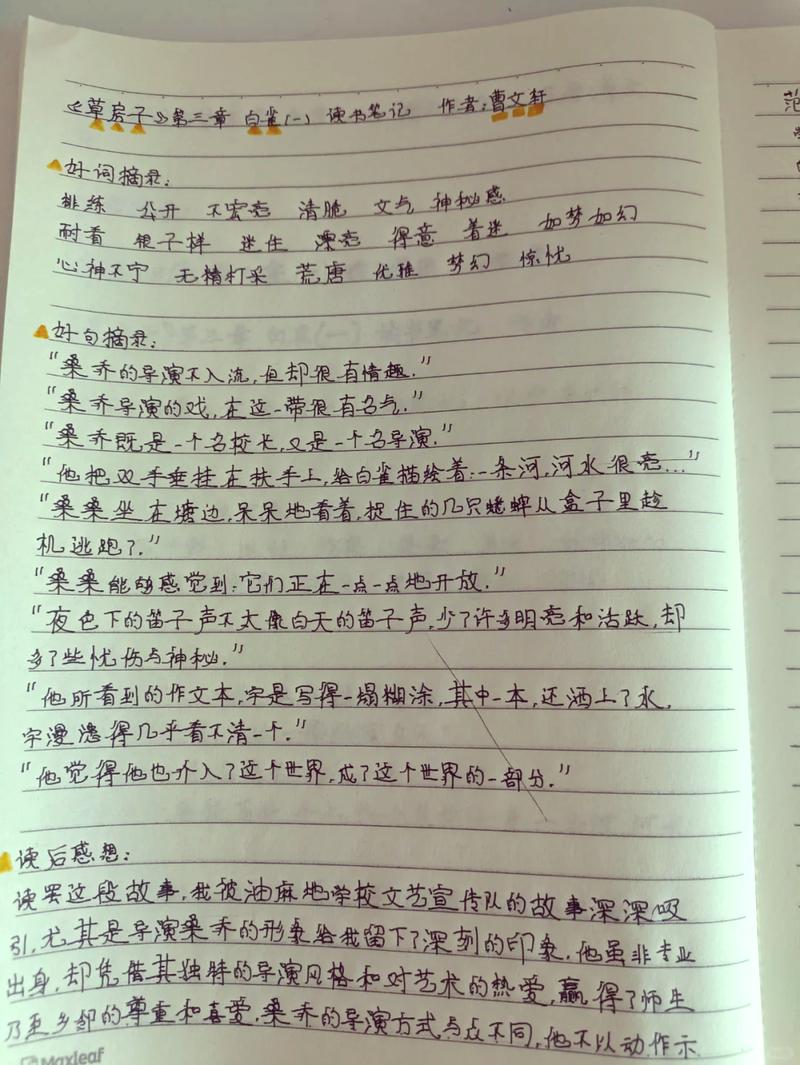 《草房子》第三章 白雀(一) 读书笔记 作者:曹文轩
好词摘录:
排练 公开 不宏亮 清脆 文气 神秘感
耐看 很子样 迷住 漂亮 得意 着迷 如梦如幻
心神不宁 无精打采 荒唐 优雅 梦幻 惊忧
好句摘录:
"桑乔的导演不入流,但却很有情趣."
"桑乔导演的戏,在这一带很有名气."
"桑乔既是一个名校长,又是一个名导演."
"他把双手垂挂在扶手上,给白雀描绘着:一条河,河水很亮..."
"桑桑坐在塘边,呆呆地看着,捉住的几只蟋蟀从盒子里趁
机逃跑了."
"桑桑能够感觉到:它们正在一点一点地开放."
"夜色下的笛子声不太像白天的笛子声,少了许多明亮和活跃,却
多了些忧伤与神秘."
"他所看到的作文本,字是写得一塌糊涂,其中一本,还洒上了水,
字漫漶得几乎看不清一个."
"他觉得他也介入了这个世界,成了这个世界的一部分."
读后感想:
读罢这段故事,我被油麻地学校文艺宣传队的故事深深吸
引,尤其是导演桑乔的形象给我留下了深刻的印象.他虽非专业
出身,却凭借其独特的导演风格和对艺术的热爱,赢得了师生
乃至乡邻的尊重和喜爱.桑乔的导演方式与众不同,他不以动作示
Maxleaf